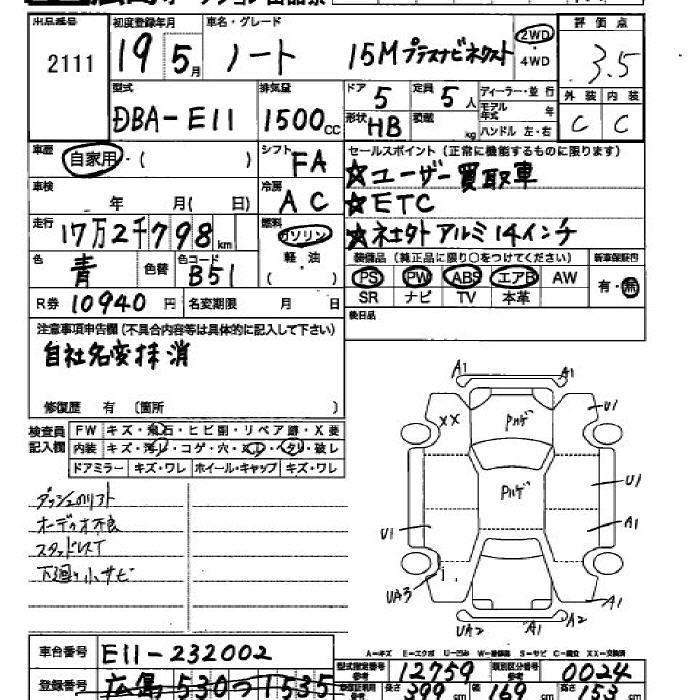 出品番号 初度登録年月 車名・グレード 評価点
2111 19 5月 ノート 15Mプラスナビネクスト 2WD・4WD 3.5
型式 排気量 ドア 定員 ディーラー・並行 外装 内装
DBA-E11 1500cc 5 5人 モデル年式 年 C C
形状 HB 積載 kg ハンドル 左・右
車歴 自家用・( ) シフト FA セールスポイント(正常に機能するものに限ります)
☆ユーザー買取車
車検 年 月( 日) 冷房 AC ☆ETC
走行 17万2千798km 燃料 ガソリン 軽油 ( ) ☆社外アルミ14インチ
色 青 色替 色コード B51 装備品(純正品に限り○をつけてください) 新車保証書
PS PW ABS エアB AW 有・無
SR ナビ TV 本革
R券 10940円 名変期限 月 日 後日品
注意事項申告欄(不具合内容等は具体的に記入して下さい)
自社名変抹消
修復歴 有 〔箇所 〕
検査員記入欄 FW キズ・飛石・ヒビ割・リペア跡・X要
内装 キズ・汚レ・コゲ・穴・ 
ヘタレ・破レ
ドアミラー キズ・ワレ ホイール・キャップ キズ・ワレ
ダッシュのリフト
オーディオ不良
スタッドレスT
下廻り小サビ
A1 A1
XX Pハゲ U1
Pハゲ U1
U1 A1
UA3 A1
UA2 A1 A2
A=キズ E=エクボ U=凹み W=補修跡 S=サビ C=腐食 XX=交換済
車台番号 E11-232002 型式指定番号 12759 類別区分番号 0024
登録番号 広島 530つ1535 長さ 399cm 幅 169cm 高さ 153cm